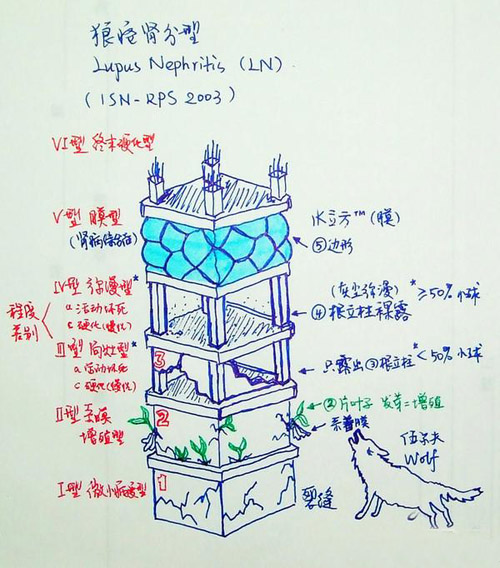 狼疮肾分型
Lupus Nephritis (LN)
(ISN-RPS 2003)
VI型 终末硬化型
V型 膜型
(肾病综合征)
水立方™(膜)
⑤边形
程度
差别
IV型 弥漫型*
a.活动坏死
c.硬化(慢化)
(灰尘弥漫)
④根立柱裸露
*≥50%小球
III型 局灶型*
a 活动坏死
c 硬化(慢化)
3
只露出③根立柱*<50%小球
II型 系膜
增殖型
2
②片叶子 发芽=增殖
I型 微小病变型
1
裂缝
伍尔夫
Wolf